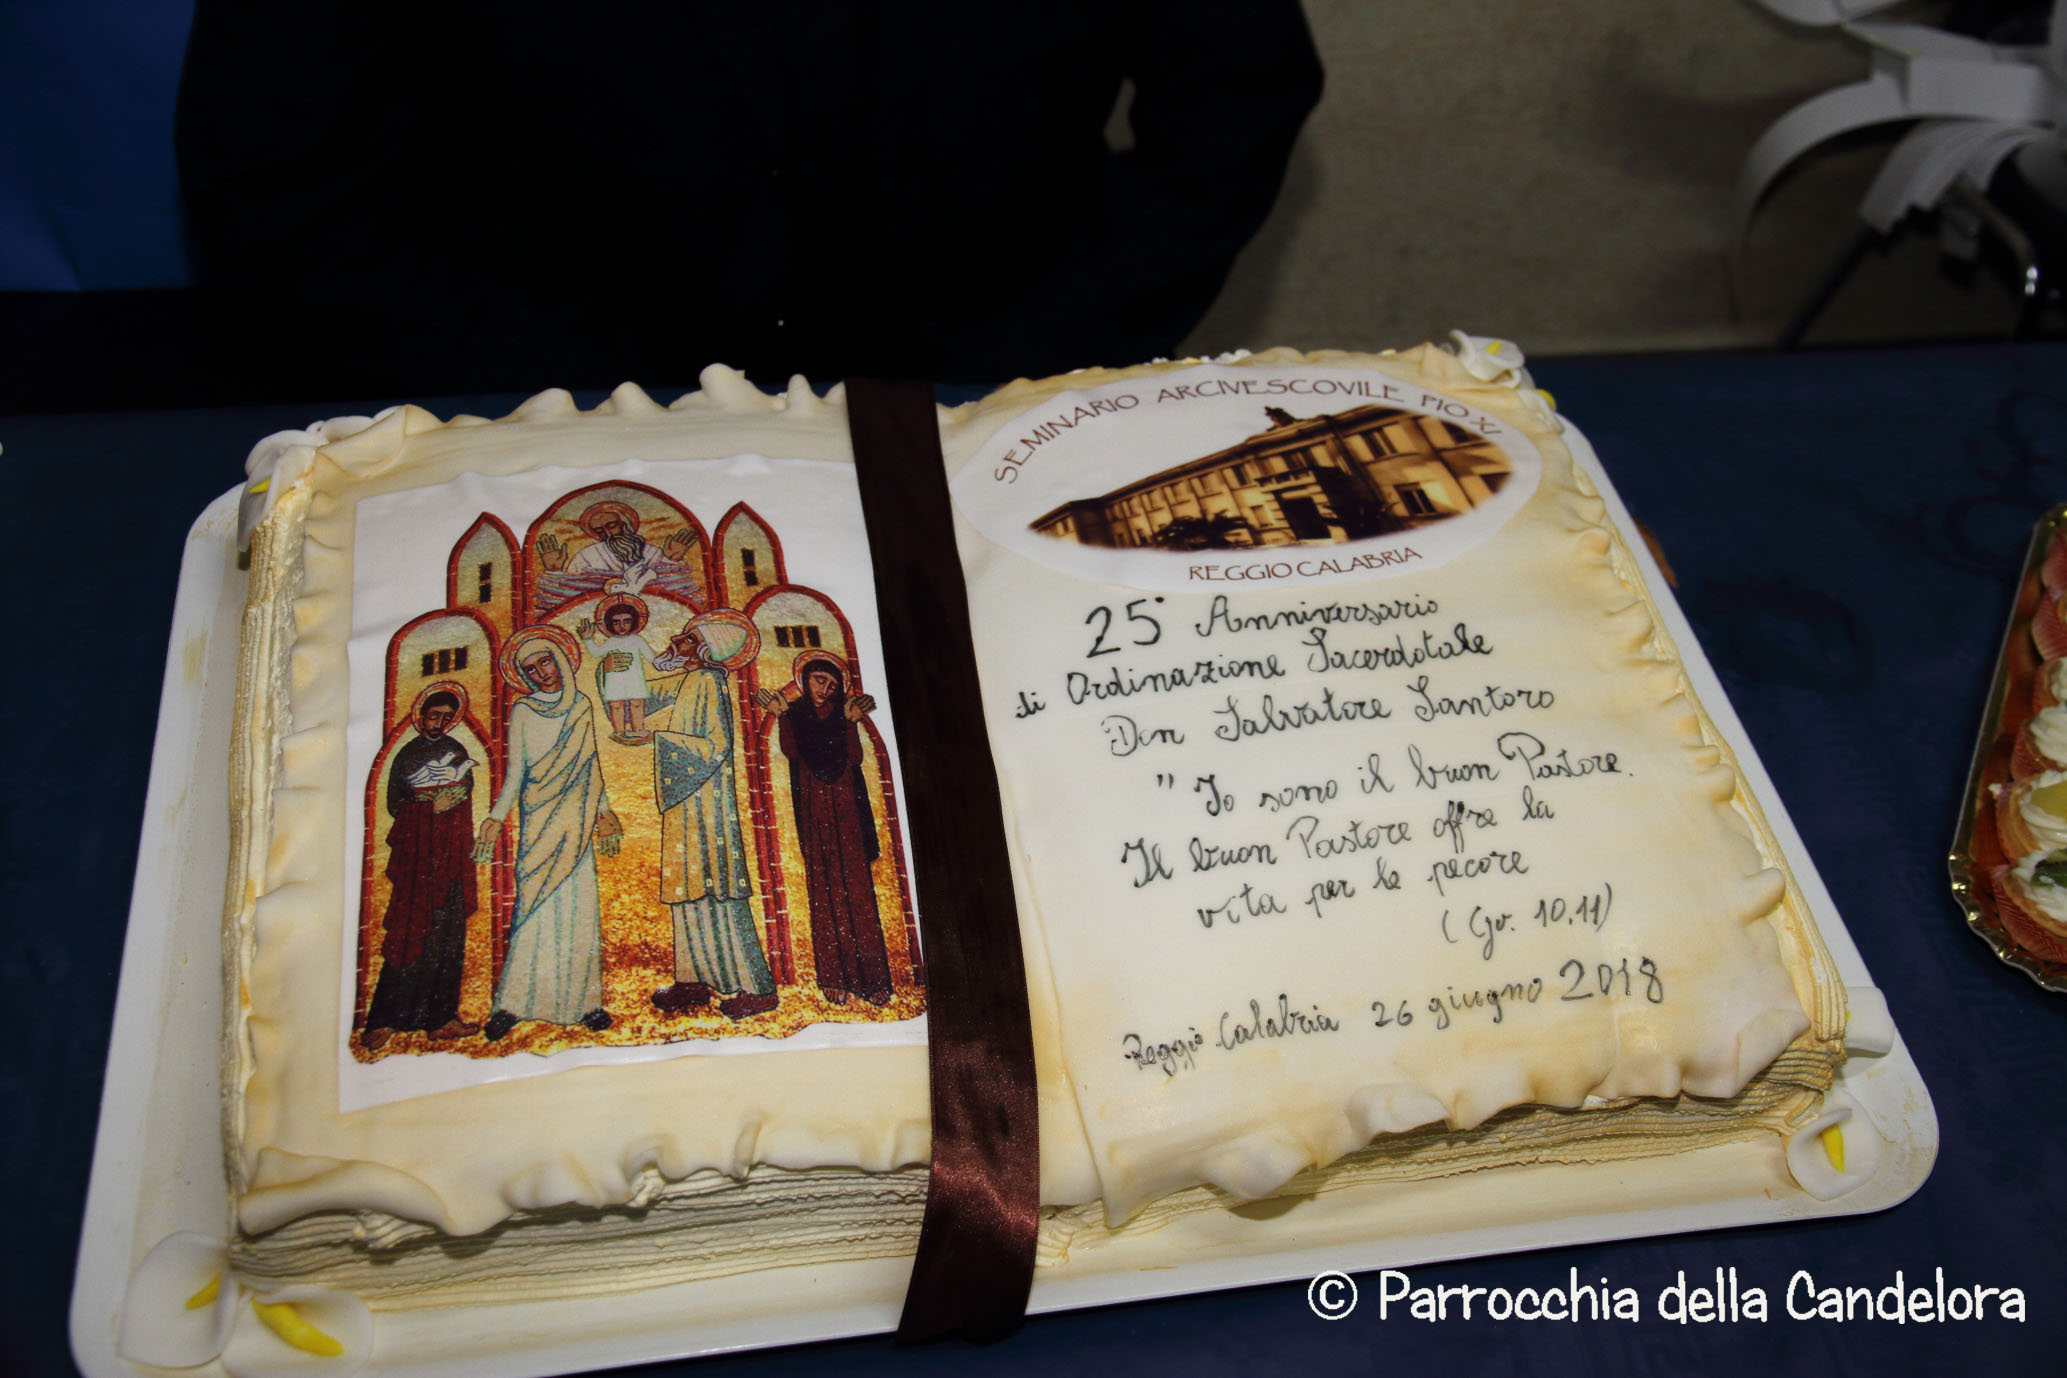 SEMINARIO ARCIVESCOVILE PIO XI
REGGIO CALABRIA
25° Anniversario
di Ordinazione Sacerdotale
Don Salvatore Santoro
" Io sono il buon Pastore.
Il buon Pastore offre la
vita per le pecore
(Gv. 10,11)
Reggio Calabria 26 giugno 2018
© Parrocchia della Candelora